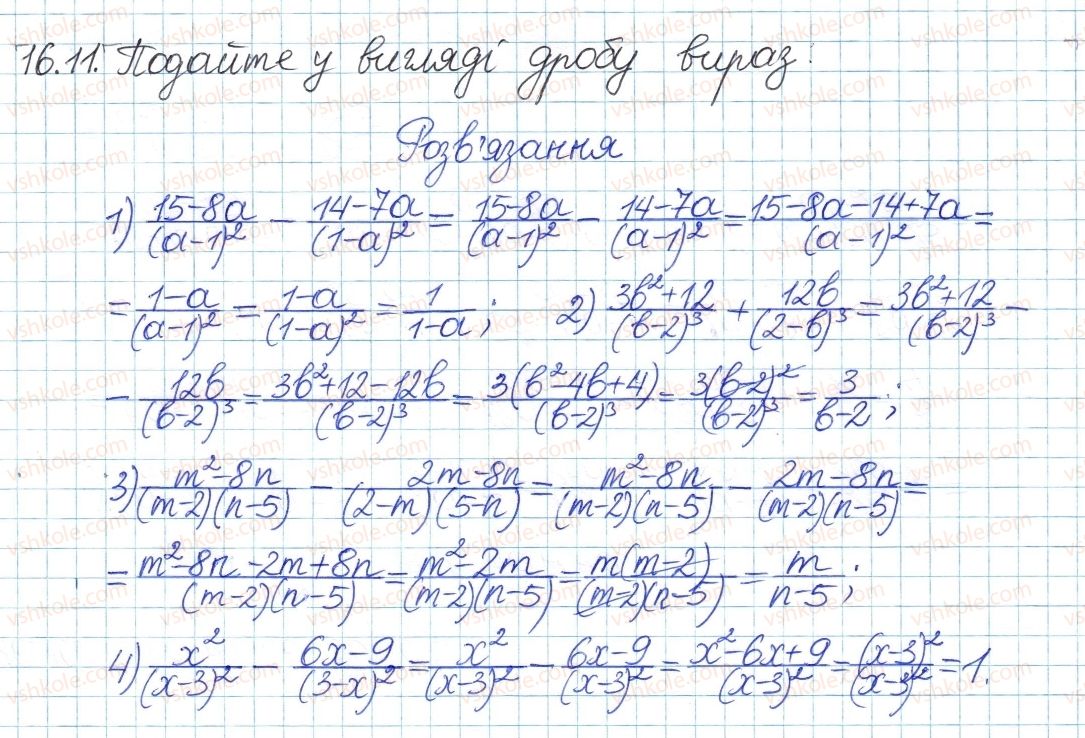 16.11. Подайте у вигляді дробу вираз:
Розв'язання
1) (15-8a)/(a-1)² - (14-7a)/(1-a)² = (15-8a)/(a-1)² - (14-7a)/(a-1)² = (15-8a-14+7a)/(a-1)² =
= (1-a)/(a-1)² = (1-a)/(1-a)² = 1/(1-a); 2) (3b²+12)/(b-2)³ + 12b/(2-b)³ = (3b²+12)/(b-2)³ -
- 12b/(b-2)³ = (3b²+12-12b)/(b-2)³ = 3(b²-4b+4)/(b-2)³ = 3(b-2)²/(b-2)³ = 3/(b-2);
3) (m²-8n)/((m-2)(n-5)) - (2m-8n)/((2-m)(5-n)) = (m²-8n)/((m-2)(n-5)) - (2m-8n)/((m-2)(n-5)) =
= (m²-8n-2m+8n)/((m-2)(n-5)) = (m²-2m)/((m-2)(n-5)) = m(m-2)/((m-2)(n-5)) = m/(n-5);
4) x²/(x-3)² - (6x-9)/(3-x)² = x²/(x-3)² - (6x-9)/(x-3)² = (x²-6x+9)/(x-3)² = (x-3)²/(x-3)² = 1.
vshkole.com